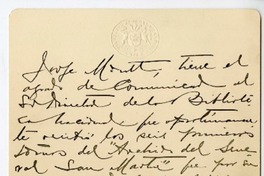 Jorge Montt, tiene el
agrado de comunicar al
Sr Director de la Biblióte
ca Nacional que oportunamen
te recibió los seis primeros
tomos del "Archivo del Gene
ral San Martin" que por su